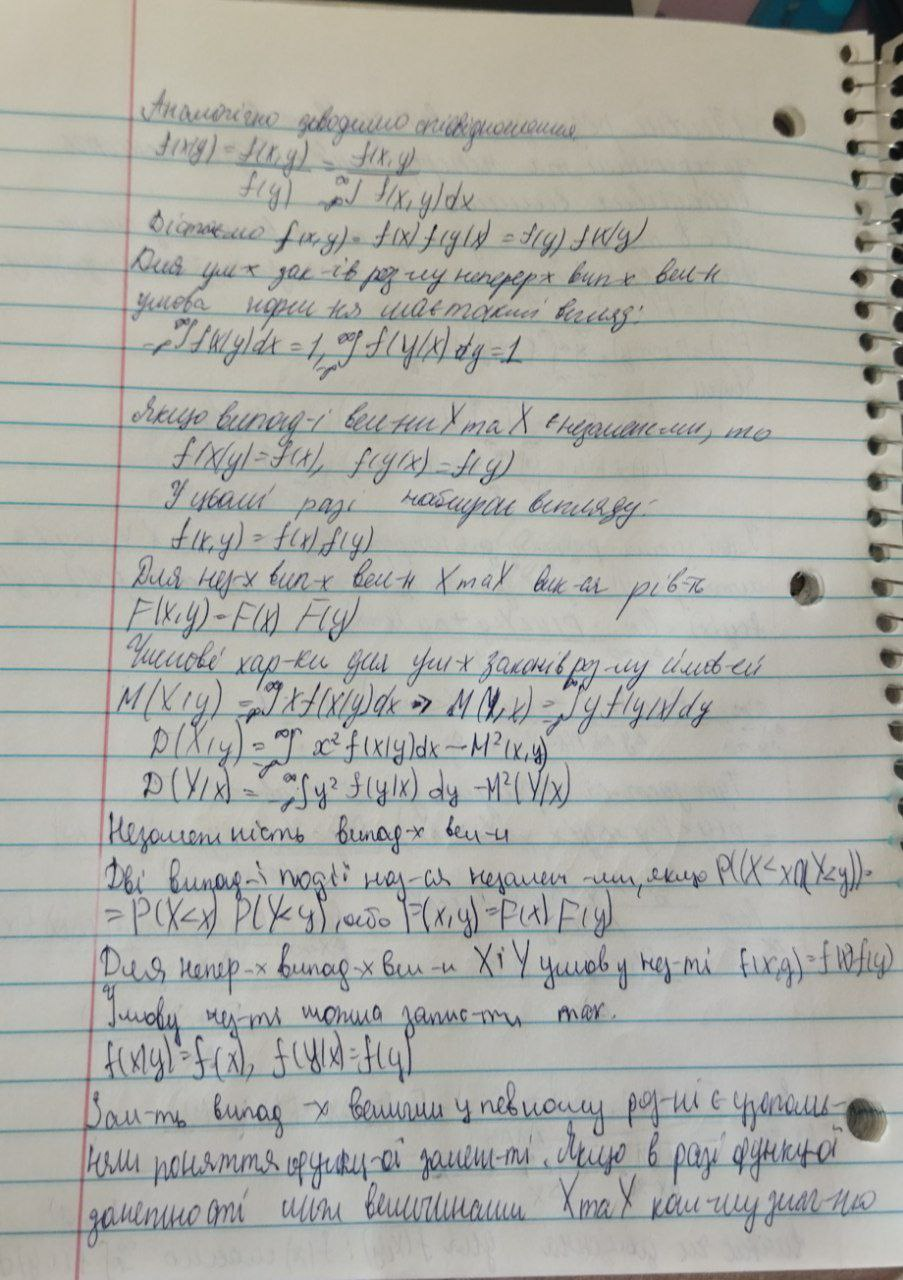 Аналогічно доводимо співвідношення
f(x|y) = f(x,y) / f(y) = f(x,y) / ∫_{-∞}^{∞} f(x,y)dx
Дістаємо f(x,y) = f(x) f(y|x) = f(y) f(x|y)
Для ум-х зак-ів роз-лу неперер-х вип-х вел-н
умова норм-ня має такий вигляд:
∫_{-∞}^{∞} f(x|y)dx = 1, ∫_{-∞}^{∞} f(y|x) dy = 1
Якщо випад-і вел-ни X та X є незалежними, то
f(x|y) = f(x), f(y|x) = f(y)
У цьому разі набирає вигляду:
f(x,y) = f(x) f(y)
Для нез-х вип-х вел-н X та X вик-ся рів-ть
F(x,y) = F(x) F(y)
Числові хар-ки для ум-х законів роз-лу ймов-ей
M(X|y) = ∫_{-∞}^{∞} x f(x|y)dx → M(Y,x) = ∫_{-∞}^{∞} y f(y|x) dy
D(X|y) = ∫_{-∞}^{∞} x² f(x|y)dx - M²(x,y)
D(Y/x) = ∫_{-∞}^{∞} y² f(y|x) dy - M²(Y/x)
Незалежність випад-х вел-н
Дві випад-і події наз-ся незалеж-ми, якщо P((X<x)∩(Y<y)) =
= P(X<x) P(Y<y), або F(x,y) = F(x) F(y)
Для непер-х випад-х вел-н X і Y умову нез-ті f(x,y) = f(x) f(y)
Умову нез-ті можна запис-ти так.
f(x|y) = f(x), f(y|x) = f(y)
Зал-ть випад-х величин у певному роз-ні є узагаль-
ням поняття функц-ої залеж-ті. Якщо в разі функц-ої
залежності між величинами X та X кож-му знач-ню